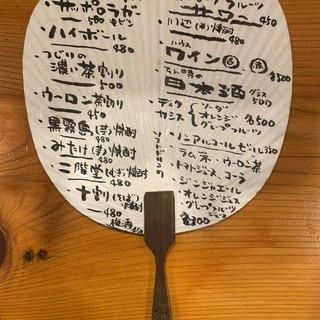 サッポロラガー
500 中ビン
・ハイボール
480
・つじりの
濃い茶割り
500
・ウーロン茶割り
450
・黒霧島(芋)焼酎
480
・みそげ(芋)焼酎
480
・二階堂(むぎ)焼酎
480
・十割(そば)焼酎
480
梅酒
グレープフルーツ
サワー 450
(麦)焼酎
480
ハウス
ワイン 白 赤 各500
日本酒 グラス 500
・ディタ
カシス
ソーダ
オレンジ
グレープフルーツ
各500
ソフトドリンク
・ノンアルコールビール350
・ラムネ・ウーロン茶
・トマトジュース・コーラ
・ジンジャエール
・オレンジジュース
・グレープフルーツ
ジュース
各300